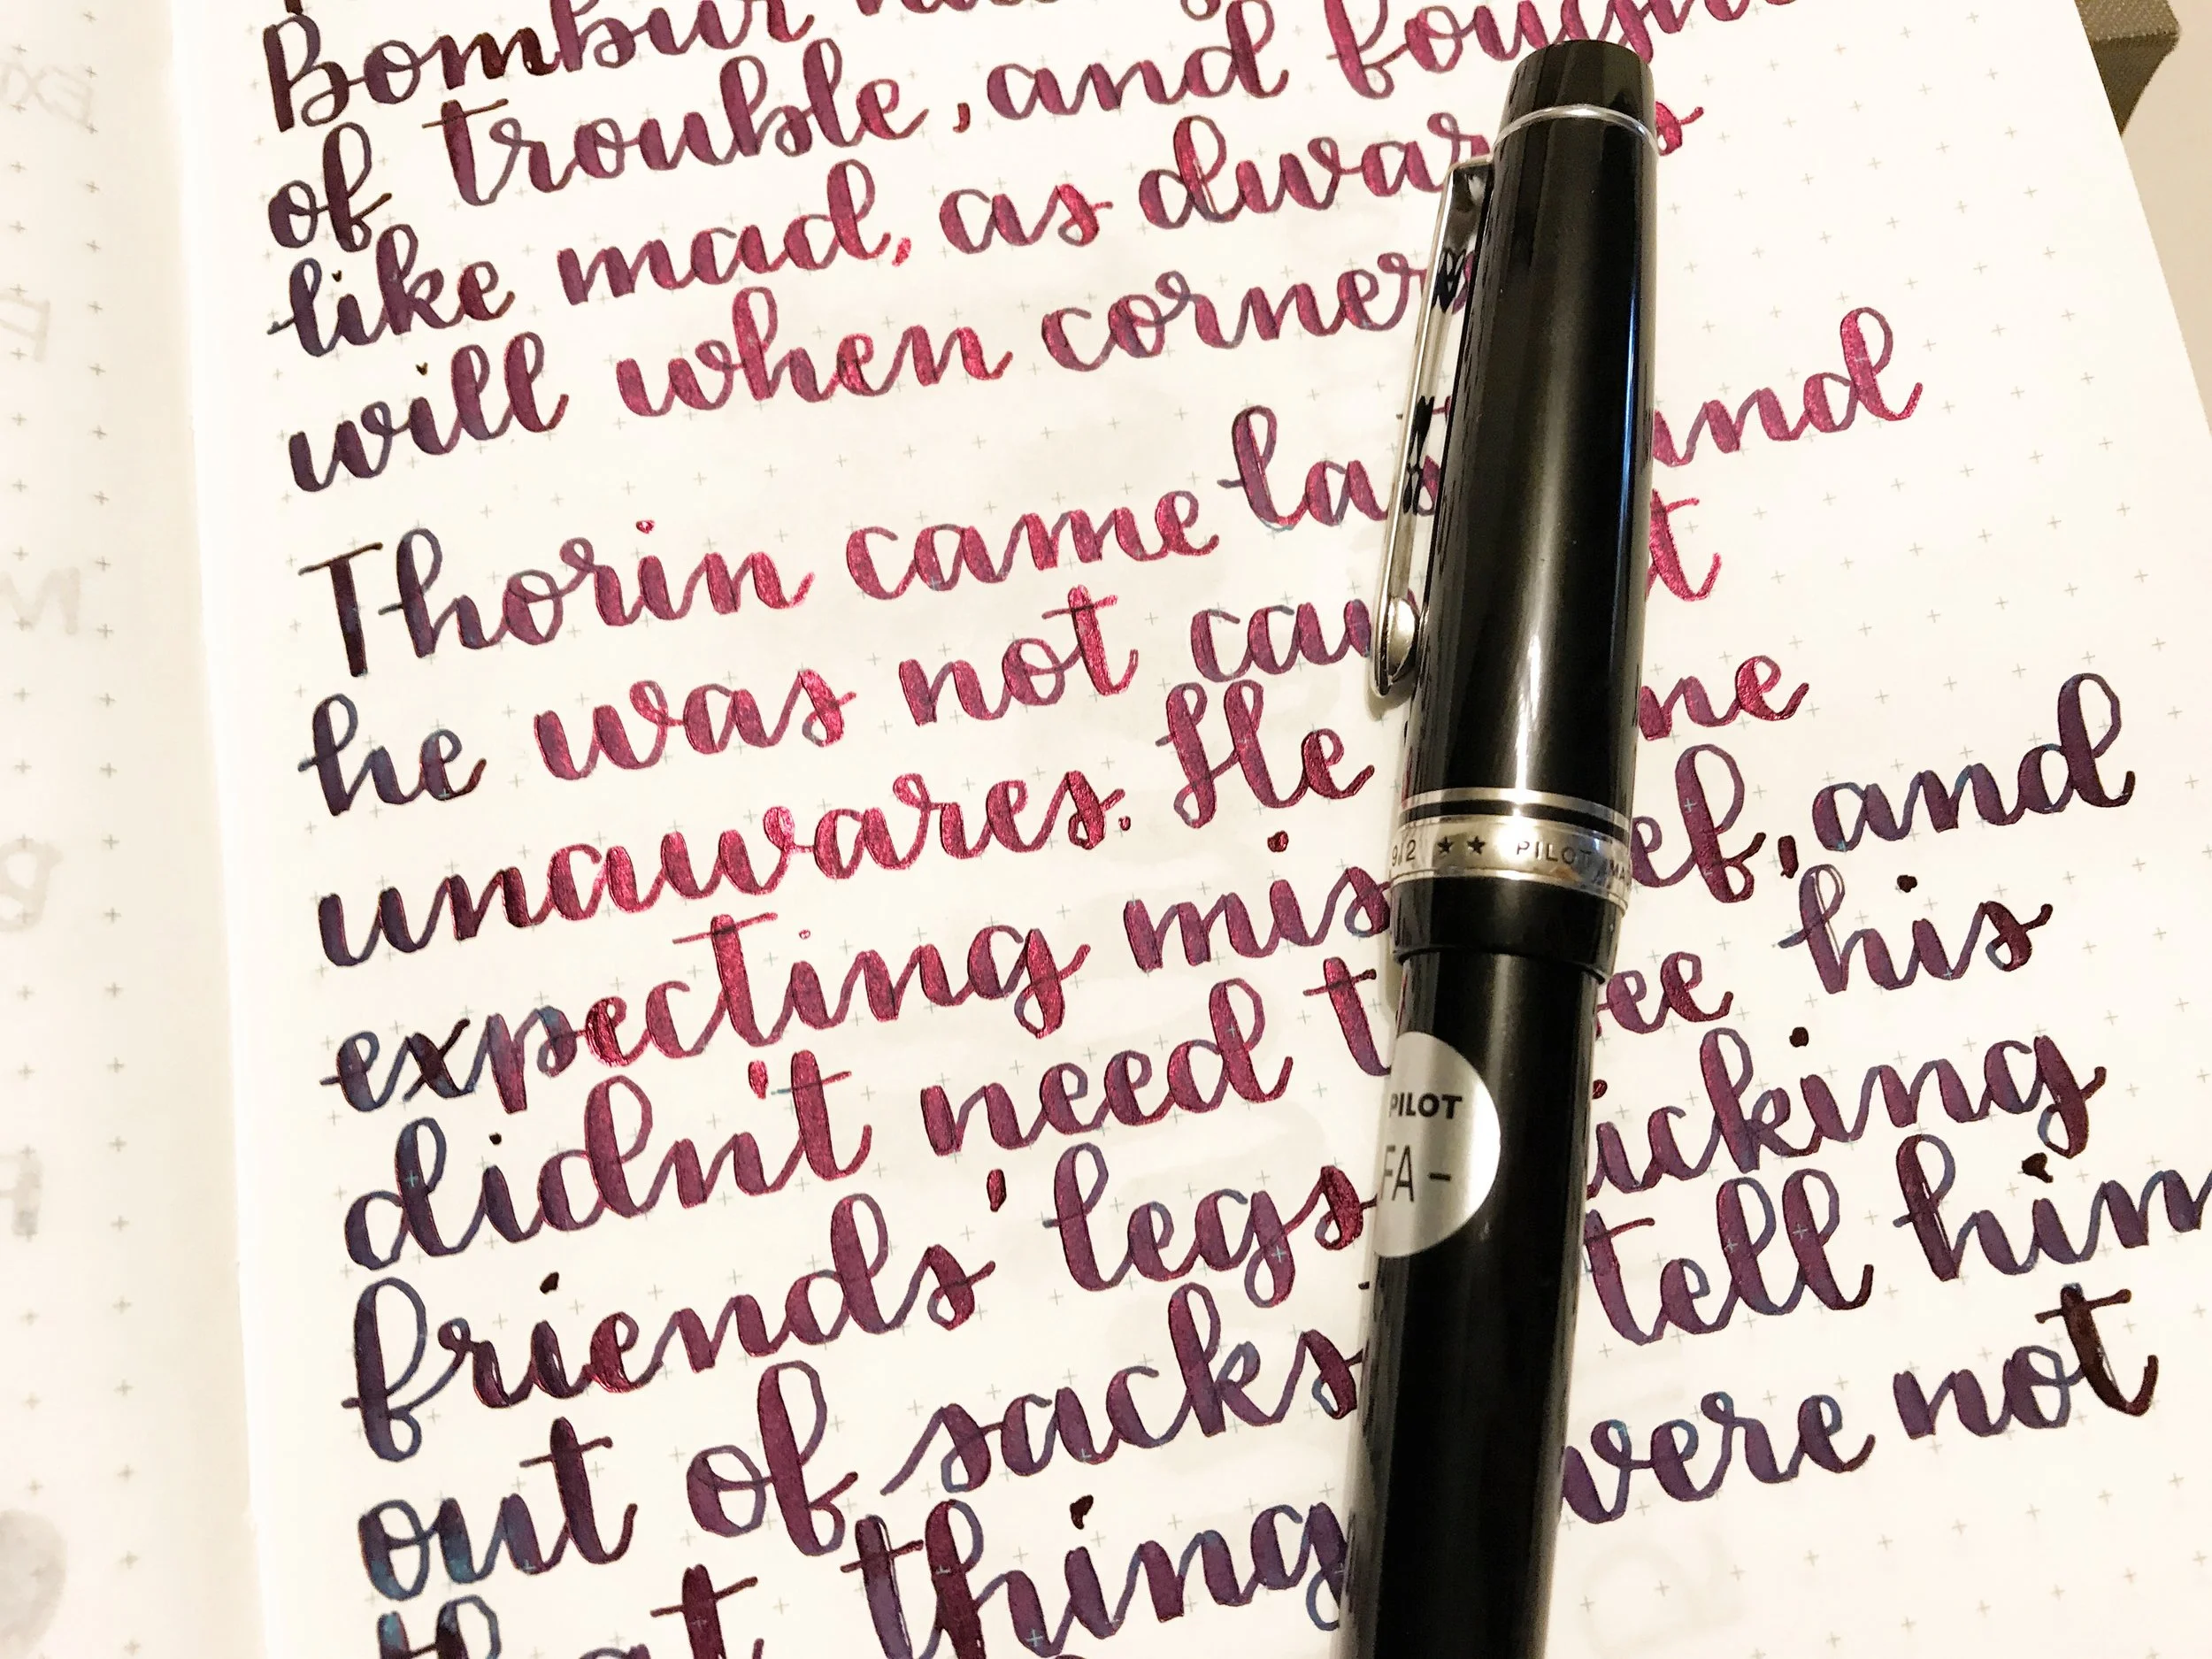 Bombur
of trouble, and fought
like mad, as dwar s
will when corner
Thorin came las and
he was not cau t
unawares. He ne
expecting mis ef, and
didn't need t ee his
friends' legs icking
out of sacks tell him
that things were not
9/2 ★★ PILOT MA
PILOT
FA-